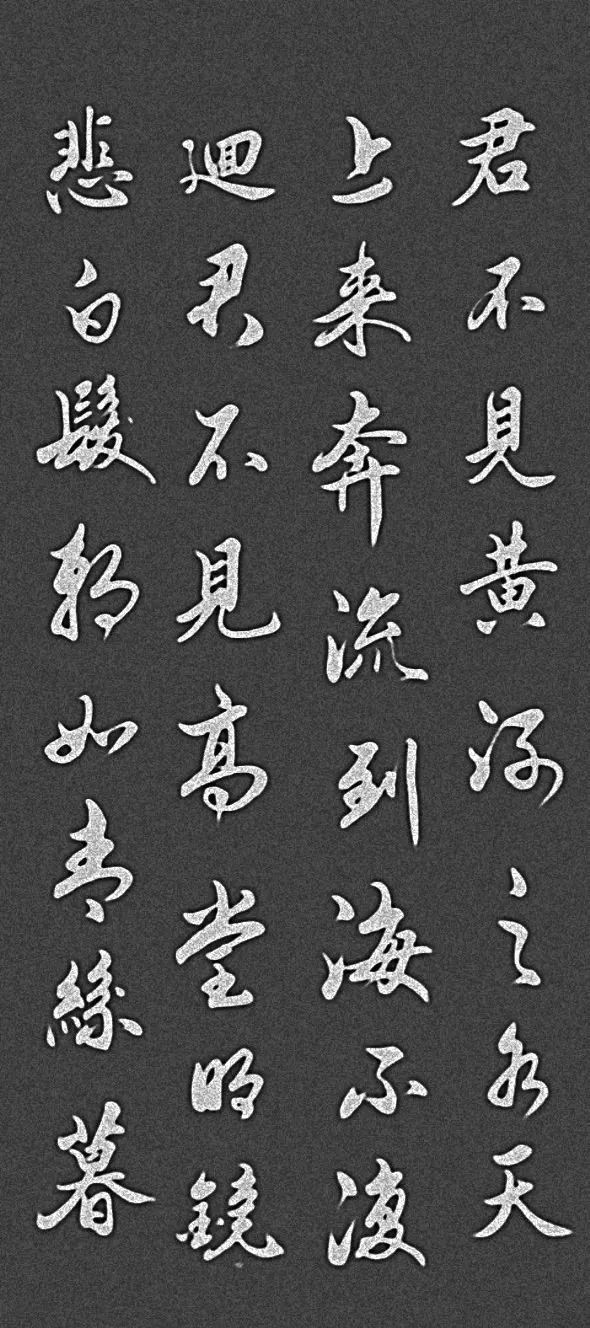 君不見黃河之水天
上来奔流到海不復
迴君不見高堂明鏡
悲白髮朝如青絲暮